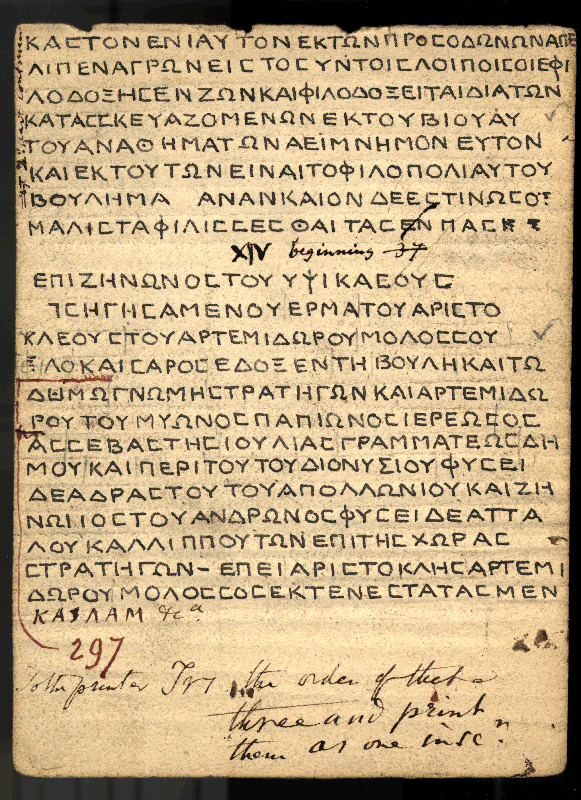 ΚΑΣΤΟΝΕΝΙΑΥΤΟΝΕΚΤΩΝΠΡΟΣΟΔΩΝΩΝΑΠΕ
ΛΙΠΕΝΑΓΡΩΝΕΙΣΤΟΣΥΝΤΟΙΣΛΟΙΠΟΙΣΟΙΕΦΙ
ΛΟΔΟΞΗΣΕΝΖΩΝΚΑΙΦΙΛΟΔΟΞΕΙΤΑΙΔΙΑΤΩΝ
ΚΑΤΑΣΣΚΕΥΑΖΟΜΕΝΩΝΕΚΤΟΥΒΙΟΥΑΥ
ΤΟΥΑΝΑΘΗΜΑΤΩΝΑΕΙΜΝΗΜΟΝΕΥΤΟΝ
ΚΑΙΕΚΤΟΥΤΩΝΕΙΝΑΙΤΟΦΙΛΟΠΟΛΙΑΥΤΟΥ
ΒΟΥΛΗΜΑ ΑΝΑΝΚΑΙΟΝΔΕΕΣΤΙΝΩΣΟ
ΜΑΛΙΣΤΑΦΙΛΙΣΣΕΣΘΑΙΤΑΣΕΝΠΑΣ
XIV beginning 37
ΕΠΙΖΗΝΩΝΟΣΤΟΥΥΨΙΚΛΕΟΥΣ
ΣΗΓΗΣΑΜΕΝΟΥΕΡΜΑΤΟΥΑΡΙΣΤΟ
ΚΛΕΟΥΣΤΟΥΑΡΤΕΜΙΔΩΡΟΥΜΟΛΟΣΣΟΥ
ΞΙΛΟΚΑΙΣΑΡΟΣΕΔΟΞΕΝΤΗΒΟΥΛΗΚΑΙΤΩ
ΔΗΜΩΓΝΩΜΗΣΤΡΑΤΗΓΩΝΚΑΙΑΡΤΕΜΙΔΩ
ΡΟΥΤΟΥΜΥΩΝΟΣΠΑΠΙΩΝΟΣΙΕΡΕΩΣΟΣ
ΑΣΣΕΒΑΣΤΗΣΙΟΥΛΙΑΣΓΡΑΜΜΑΤΕΩΣΔΗ
ΜΟΥΚΑΙΠΕΡΙΤΟΥΤΟΥΔΙΟΝΥΣΙΟΥΦΥΣΕΙ
ΔΕΑΔΡΑΣΤΟΥΤΟΥΑΠΟΛΛΩΝΙΟΥΚΑΙΖΗ
ΝΩΝΟΣΤΟΥΑΝΔΡΩΝΟΣΦΥΣΕΙΔΕΑΤΤΑ
ΛΟΥΚΑΛΛΙΠΠΟΥΤΩΝΕΠΙΤΗΣΧΩΡΑΣ
ΣΤΡΑΤΗΓΩΝ–ΕΠΕΙΑΡΙΣΤΟΚΛΗΣΑΡΤΕΜΙ
ΔΩΡΟΥΜΟΛΟΣΣΟΣΕΚΤΕΝΕΣΤΑΤΑΣΜΕΝ
ΚΑΙΛΑΜ &ca
297
To the printer Try the order of these
three and print
them as one insc.